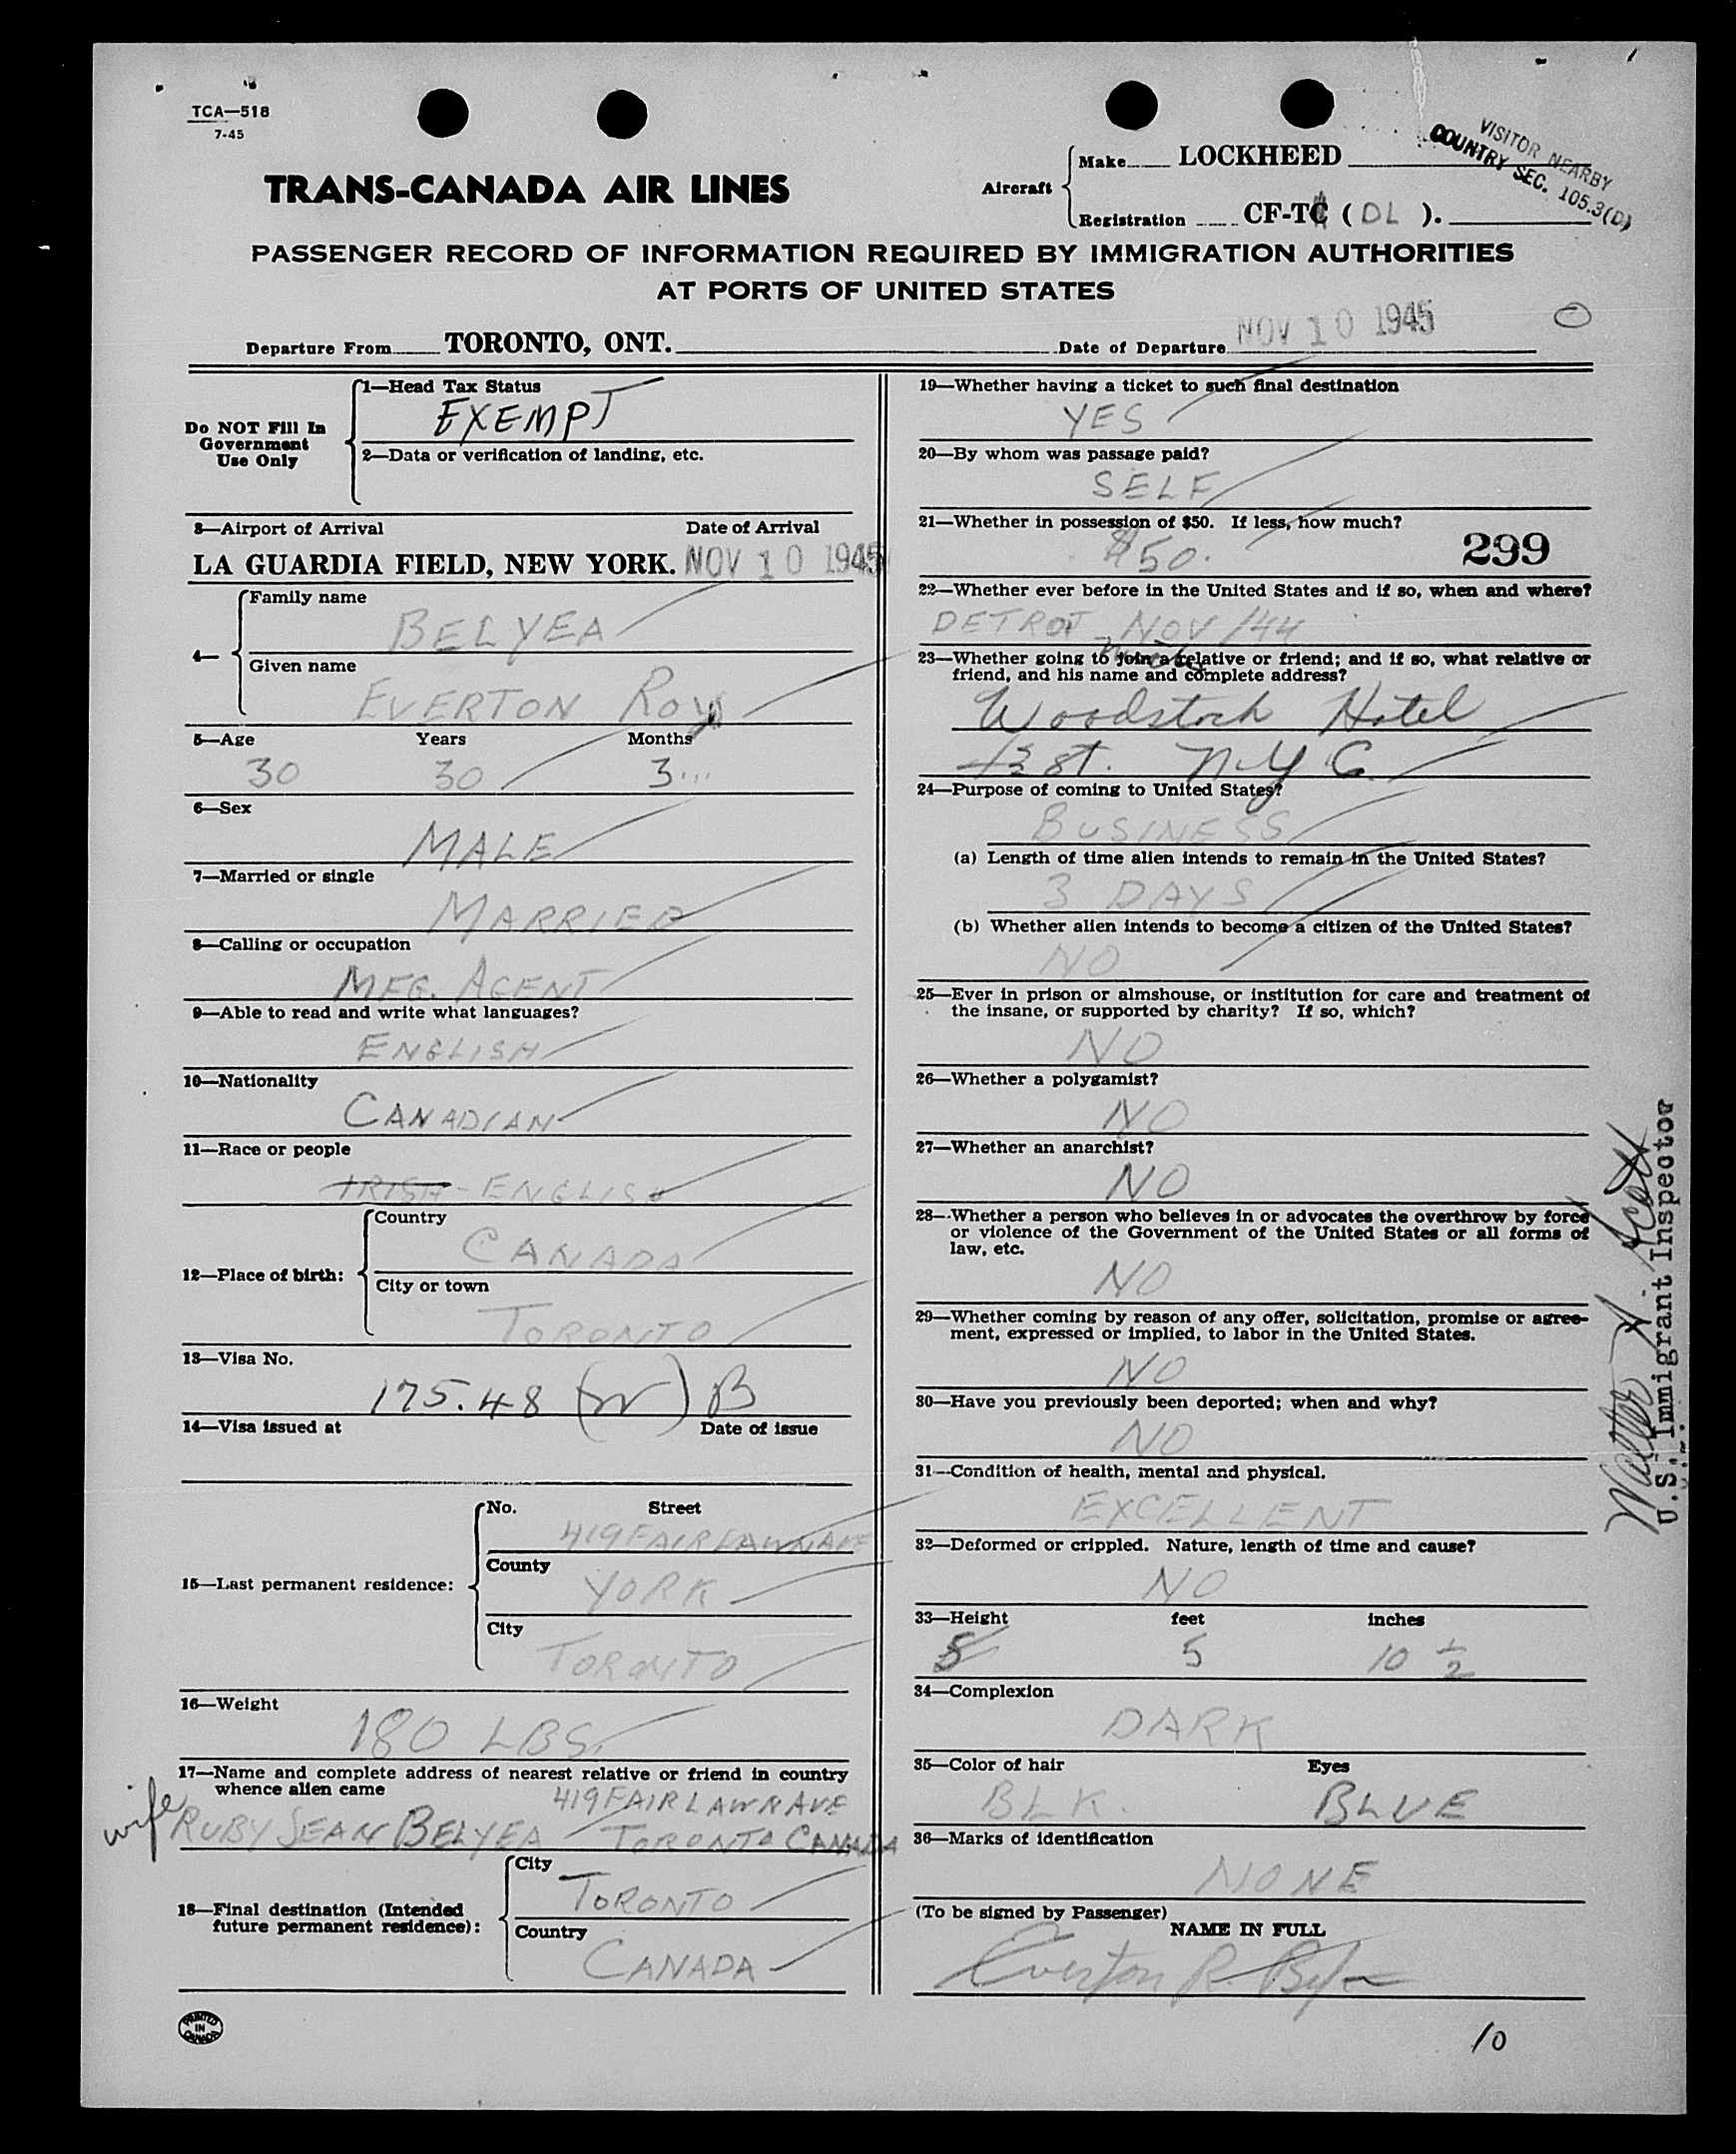 TCA—518
7-45
VISITOR NEARBY
COUNTRY SEC. 105.3(D)
TRANS-CANADA AIR LINES
Aircraft
Make LOCKHEED
Registration CF-TC ( DL ).
PASSENGER RECORD OF INFORMATION REQUIRED BY IMMIGRATION AUTHORITIES
AT PORTS OF UNITED STATES
Departure From TORONTO, ONT. Date of Departure NOV 10 1945
Do NOT Fill In
Government
Use Only
1—Head Tax Status
EXEMPT
2—Data or verification of landing, etc.
3—Airport of Arrival Date of Arrival
LA GUARDIA FIELD, NEW YORK. NOV 10 1945
4—
Family name
BELYEA
Given name
EVERTON ROY
5—Age Years Months
30 30 3
6—Sex
MALE
7—Married or single
MARRIED
8—Calling or occupation
MFG. AGENT
9—Able to read and write what languages?
ENGLISH
10—Nationality
CANADIAN
11—Race or people
IRISH - ENGLISH
12—Place of birth:
Country
CANADA
City or town
TORONTO
13—Visa No.
175.48 (W) B
14—Visa issued at Date of issue
15—Last permanent residence:
No. Street
419 FAIRLAWN AVE
County
YORK
City
TORONTO
16—Weight
180 LBS.
17—Name and complete address of nearest relative or friend in country
whence alien came
419 FAIRLAWN AVE
wife RUBY JEAN BELYEA TORONTO CANADA
18—Final destination (Intended
future permanent residence):
City
TORONTO
Country
CANADA
PRINTED
IN
CANADA
19—Whether having a ticket to such final destination
YES
20—By whom was passage paid?
SELF
21—Whether in possession of $50. If less, how much?
$50. 299
22—Whether ever before in the United States and if so, when and where?
DETROIT - NOV /44
23—Whether going to join a relative or friend; and if so, what relative or
friend, and his name and complete address?
Woodstock Hotel
43 St. N.Y.C.
24—Purpose of coming to United States?
BUSINESS
(a) Length of time alien intends to remain in the United States?
3 DAYS
(b) Whether alien intends to become a citizen of the United States?
NO
25—Ever in prison or almshouse, or institution for care and treatment of
the insane, or supported by charity? If so, which?
NO
26—Whether a polygamist?
NO
27—Whether an anarchist?
NO
28—Whether a person who believes in or advocates the overthrow by force
or violence of the Government of the United States or all forms of
law, etc.
NO
29—Whether coming by reason of any offer, solicitation, promise or agree-
ment, expressed or implied, to labor in the United States.
NO
30—Have you previously been deported; when and why?
NO
31—Condition of health, mental and physical.
EXCELLENT
32—Deformed or crippled. Nature, length of time and cause?
NO
33—Height feet inches
5 5 10 1/2
34—Complexion
DARK
35—Color of hair Eyes
BLK. BLUE
36—Marks of identification
NONE
(To be signed by Passenger)
NAME IN FULL
Everton R. Belyea
10
Walter H. Scott
U.S. Immigrant Inspector